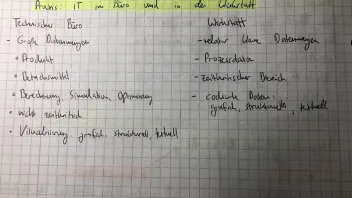 Praxis: IT im Büro und in der Werkstatt
Technischer Büro
Werkstatt
- Große Datenmengen
- relativ kleine Datenmengen
• Produkt
- Prozessdaten
• Betriebsmittel
- zeitkritischer Bereich
• Berechnung, Simulation, Optimierung
- codierte Daten:
grafisch, strukturell, textuell
• nicht zeitkritisch
• Visualisierung grafisch, strukturell, textuell